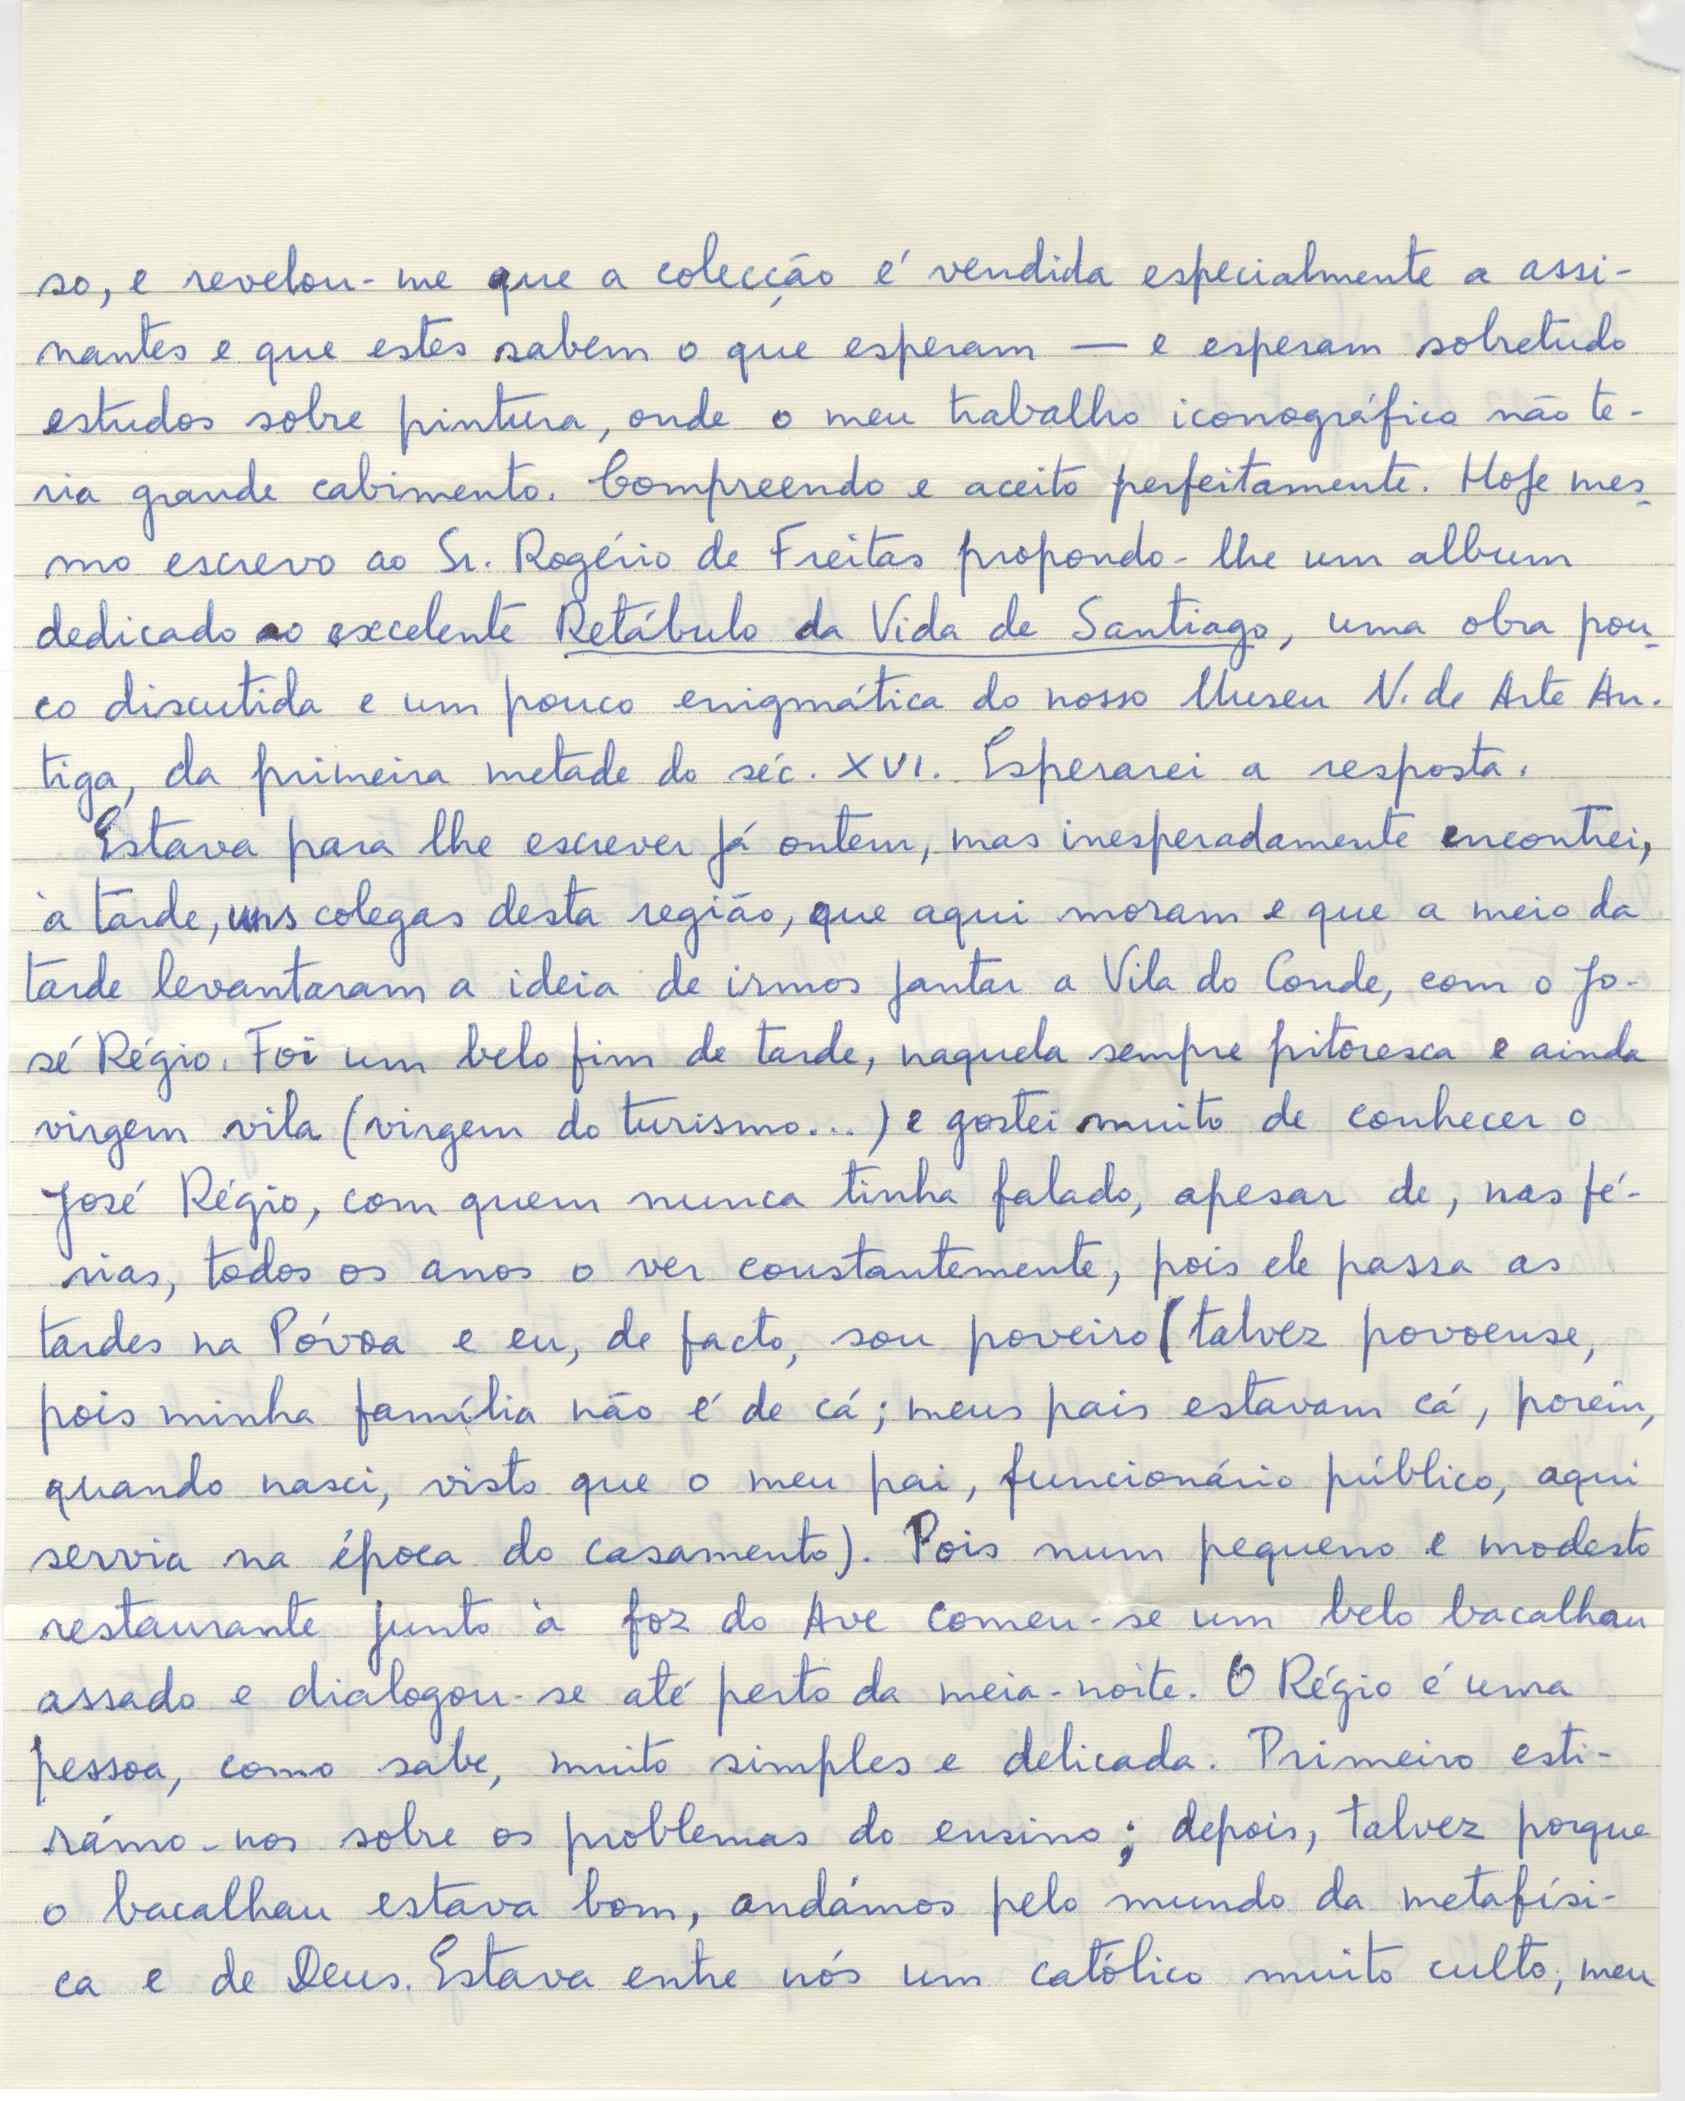 so, e revelou-me que a colecção é vendida especialmente a assi-
nantes e que estes sabem o que esperam — e esperam sobretudo
estudos sobre pintura, onde o meu trabalho iconográfico não te-
ria grande cabimento. Compreendo e aceito perfeitamente. Hoje mes-
mo escrevo ao Sr. Rogério de Freitas propondo-lhe um album
dedicado ao excelente Retábulo da Vida de Santiago, uma obra pou-
co discutida e um pouco enigmática do nosso Museu N. de Arte An-
tiga, da primeira metade do séc. XVI. Esperarei a resposta.
Estava para lhe escrever já ontem, mas inesperadamente encontrei,
à tarde, uns colegas desta região, que aqui moram e que a meio da
tarde levantaram a ideia de irmos jantar a Vila do Conde, com o Jo-
sé Régio. Foi um belo fim de tarde, naquela sempre pitoresca e ainda
virgem vila (virgem do turismo...) e gostei muito de conhecer o
José Régio, com quem nunca tinha falado, apesar de, nas fé-
rias, todos os anos o ver constantemente, pois ele passa as
tardes na Póvoa e eu, de facto, sou poveiro (talvez povoense,
pois minha família não é de cá; meus pais estavam cá, porém,
quando nasci, visto que o meu pai, funcionário público, aqui
servia na época do casamento). Pois num pequeno e modesto
restaurante junto à foz do Ave comeu-se um belo bacalhau
assado e dialogou-se até perto da meia-noite. O Régio é uma
pessoa, como sabe, muito simples e delicada. Primeiro esti-
rámo-nos sobre os problemas do ensino; depois, talvez porque
o bacalhau estava bom, andámos pelo mundo da metafísi-
ca e de Deus. Estava entre nós um católico muito culto, meu